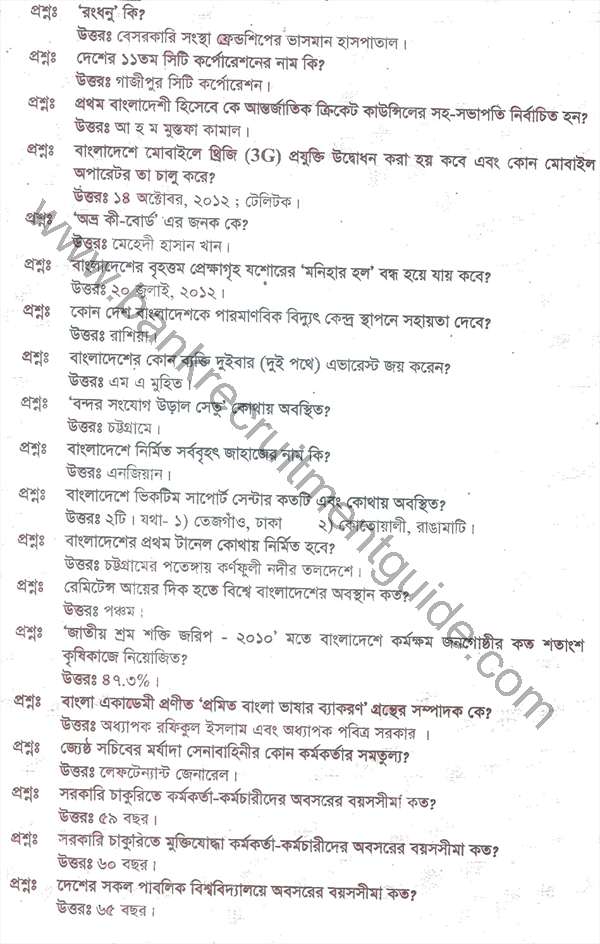 প্রশ্নঃ 'রংধনু' কি?
উত্তরঃ বেসরকারি সংস্থা ফ্রেন্ডশিপের ভাসমান হাসপাতাল।
প্রশ্নঃ দেশের ১১তম সিটি কর্পোরেশনের নাম কি?
উত্তরঃ গাজীপুর সিটি কর্পোরেশন।
প্রশ্নঃ প্রথম বাংলাদেশী হিসেবে কে আন্তর্জাতিক ক্রিকেট কাউন্সিলের সহ-সভাপতি নির্বাচিত হন?
উত্তরঃ আ হ ম মুস্তফা কামাল।
প্রশ্নঃ বাংলাদেশে মোবাইলে থ্রিজি (3G) প্রযুক্তি উদ্বোধন করা হয় কবে এবং কোন মোবাইল
অপারেটর তা চালু করে?
উত্তরঃ ১৪ অক্টোবর, ২০১২ ; টেলিটক।
প্রশ্নঃ 'অভ্র কী-বোর্ড' এর জনক কে?
উত্তরঃ মেহেদী হাসান খান।
প্রশ্নঃ বাংলাদেশের বৃহত্তম প্রেক্ষাগৃহ যশোরের 'মনিহার হল' বন্ধ হয়ে যায় কবে?
উত্তরঃ ২০ জুলাই, ২০১২।
প্রশ্নঃ কোন দেশ বাংলাদেশকে পারমাণবিক বিদ্যুৎ কেন্দ্র স্থাপনে সহায়তা দেবে?
উত্তরঃ রাশিয়া।
প্রশ্নঃ বাংলাদেশের কোন ব্যক্তি দুইবার (দুই পথে) এভারেস্ট জয় করেন?
উত্তরঃ এম এ মুহিত।
প্রশ্নঃ 'বন্দর সংযোগ উড়াল সেতু' কোথায় অবস্থিত?
উত্তরঃ চট্টগ্রামে।
প্রশ্নঃ বাংলাদেশে নির্মিত সর্ববৃহৎ জাহাজের নাম কি?
উত্তরঃ এনজিয়ান।
প্রশ্নঃ বাংলাদেশে ভিকটিম সাপোর্ট সেন্টার কতটি এবং কোথায় অবস্থিত?
উত্তরঃ ২টি। যথা- ১) তেজগাঁও, ঢাকা ২) কোতোয়ালী, রাঙামাটি।
প্রশ্নঃ বাংলাদেশের প্রথম টানেল কোথায় নির্মিত হবে?
উত্তরঃ চট্টগ্রামের পতেঙ্গায় কর্ণফুলী নদীর তলদেশে।
প্রশ্নঃ রেমিটেন্স আয়ের দিক হতে বিশ্বে বাংলাদেশের অবস্থান কত?
উত্তরঃ পঞ্চম;
প্রশ্নঃ 'জাতীয় শ্রম শক্তি জরিপ - ২০১০' মতে বাংলাদেশে কর্মক্ষম জনগোষ্ঠীর কত শতাংশ
কৃষিকাজে নিয়োজিত?
উত্তরঃ ৪৭.৩%।
প্রশ্নঃ বাংলা একাডেমী প্রণীত 'প্রমিত বাংলা ভাষার ব্যাকরণ' গ্রন্থের সম্পাদক কে?
উত্তরঃ অধ্যাপক রফিকুল ইসলাম এবং অধ্যাপক পবিত্র সরকার।
প্রশ্নঃ জ্যেষ্ঠ সচিবের মর্যাদা সেনাবাহিনীর কোন কর্মকর্তার সমতুল্য?
উত্তরঃ লেফটেন্যান্ট জেনারেল।
প্রশ্নঃ সরকারি চাকুরিতে কর্মকর্তা-কর্মচারীদের অবসরের বয়সসীমা কত?
উত্তরঃ ৫৯ বছর।
প্রশ্নঃ সরকারি চাকুরিতে মুক্তিযোদ্ধা কর্মকর্তা-কর্মচারীদের অবসরের বয়সসীমা কত?
উত্তরঃ ৬০ বছর।
প্রশ্নঃ দেশের সকল পাবলিক বিশ্ববিদ্যালয়ে অবসরের বয়সসীমা কত?
উত্তরঃ ৬৫ বছর।
www.bankrecruitmentguide.com